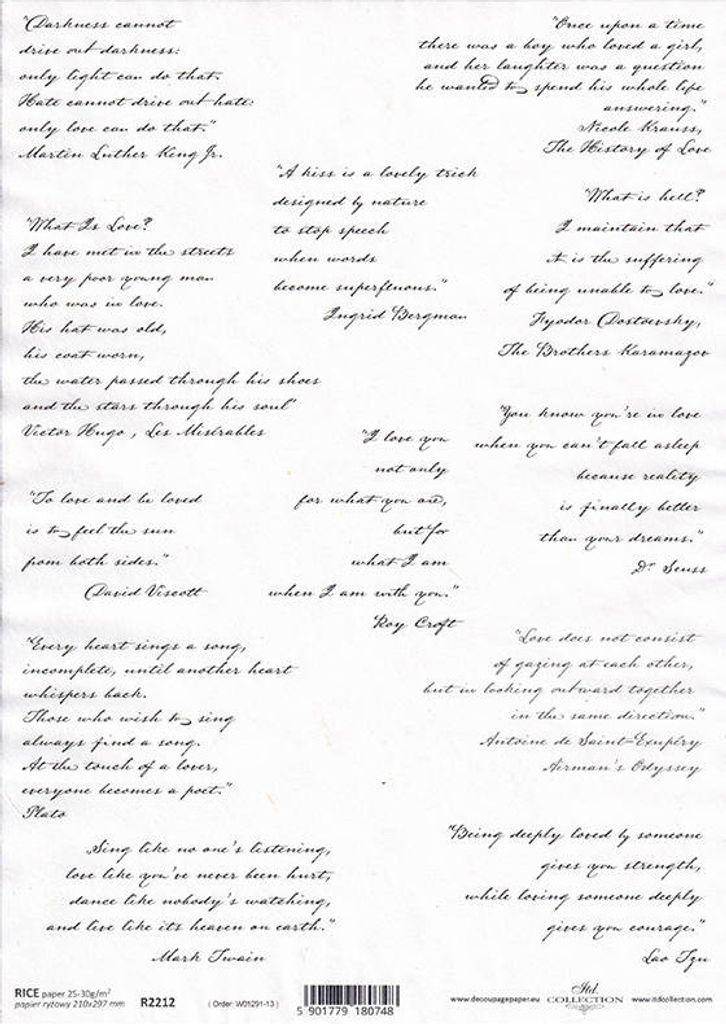 "Darkness cannot
drive out darkness:
only light can do that.
Hate cannot drive out hate:
only love can do that."
Martin Luther King Jr.
"Once upon a time
there was a boy who loved a girl,
and her laughter was a question
he wanted to spend his whole life
answering."
Nicole Krauss,
The History of Love
"A kiss is a lovely trick
designed by nature
to stop speech
when words
become superfluous."
Ingrid Bergman
"What is hell?
I maintain that
it is the suffering
of being unable to love."
Fyodor Dostoevsky,
The Brothers Karamazov
"What Is Love?
I have met in the streets
a very poor young man
who was in love.
His hat was old,
his coat worn,
the water passed through his shoes
and the stars through his soul"
Victor Hugo, Les Misérables
"You know you're in love
when you can't fall asleep
because reality
is finally better
than your dreams."
Dr Seuss
"I love you
not only
for what you are,
but for
what I am
when I am with you."
Roy Croft
"To love and be loved
is to feel the sun
from both sides."
David Viscott
"Every heart sings a song,
incomplete, until another heart
whispers back.
Those who wish to sing
always find a song.
At the touch of a lover,
everyone becomes a poet."
Plato
"Love does not consist
of gazing at each other,
but in looking outward together
in the same direction."
Antoine de Saint-Exupéry
Airman's Odyssey
„Sing like no one's listening,
love like you've never been hurt,
dance like nobody's watching,
and live like its heaven on earth."
Mark Twain
"Being deeply loved by someone
gives you strength,
while loving someone deeply
gives you courage."
Lao Tzu
RICE paper 25-30g/m²
papier ryżowy 210x297 mm
R2212
( Order: W01291-13 )
5 901779 180748
www.decoupagepaper.eu
Itd.
COLLECTION
www.itdcollection.com